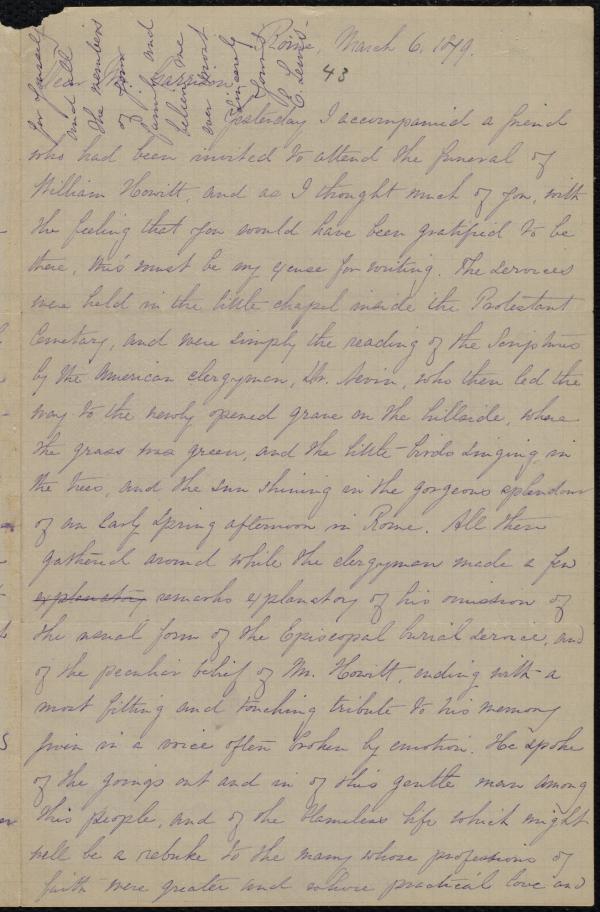 Rome, March 6, 1879.
43
Dear Mr. Garrison
Yesterday I accompanied a friend
who had been invited to attend the funeral of
William Howitt, and as I thought much of you, with
the feeling that you would have been gratified to be
there, this must be my excuse for writing. The services
were held in the little chapel inside the Protestant
Cemetary, and were simply the reading of the Scriptures
by the American clergyman, Dr. Nevin, who then led the
way to the newly opened grave on the hillside, where
the grass was green, and the little birds singing in
the trees, and the sun shining in the gorgeous splendour
of an early Spring afternoon in Rome. All then
gathered around while the clergyman made a few
explanatory remarks explanatory of his omission of
the usual form of the Episcopal burial service, and
of the peculiar belief of Mr. Howitt, ending with a
most fitting and touching tribute to his memory
given in a voice often broken by emotion. He spoke
of the goings out and in of this gentle man among
this people, and of the blameless life which might
well be a rebuke to the many whose professions of
faith were greater and whose practical love and
for yourself
and all
the members
of your
family and
believe me
ever most
sincerely
yours
E. Lewis